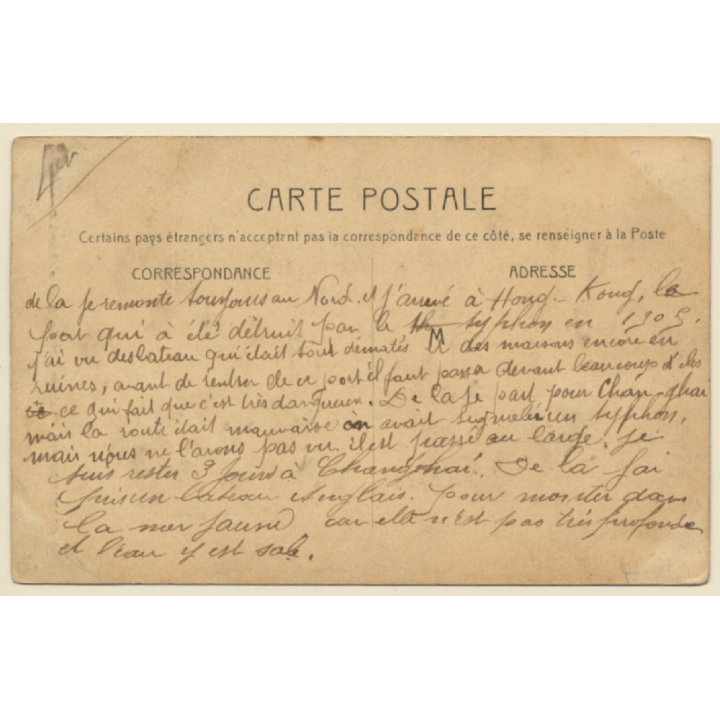 4
CARTE POSTALE
Certains pays étrangers n'acceptent pas la correspondance de ce côté, se renseigner à la Poste
CORRESPONDANCE
ADRESSE
de la je remonte toujours au Nord. et j'arrivé à Hong-Kong, le
port qui à été détruit par la typhon en 190
j'ai vu des bateau qui était tout dématés et des maisons encore en
M
ruines, avant de rentrer de ce port il faut passer devant beaucoup d'iles
ce qui fait que c'est très dangureux. De la je part pour Chang-ghai
mais la route était mauvaise on avait signalé un typhon,
mais nous ne l'avons pas vu il est passé au large. je
suis rester 3 jours à Changhai. De là j'ai
pris un bateau Anglais. pour monter dans
la mer jaune car elle n'est pas très profonde
et l'eau y est sale.